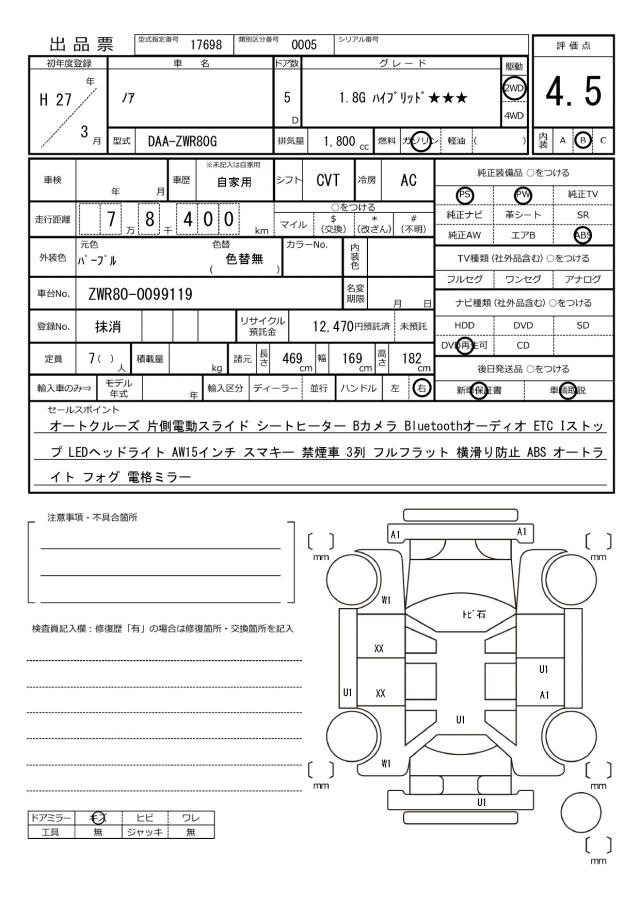 出品票 型式指定番号 17698 類別区分番号 0005 シリアル番号
評価点
4.5
内装 A B C
初年度登録 車名 ドア数 グレード 駆動
H 27 年 / 3 月 ノア 5 D 1.8G ハイブリッド★★★ 2WD
4WD
型式 DAA-ZWR80G 排気量 1,800 cc 燃料 ガソリン 軽油 ( )
車検 年 月 車歴 ※未記入は自家用 自家用 シフト CVT 冷房 AC
走行距離 7 万 8 千 4 0 0 km
○をつける
マイル $ (交換) * (改ざん) # (不明)
外装色 元色 パープル 色替 ( 色替無 ) カラーNo. 内装色
車台No. ZWR80-0099119 名変期限 月 日
登録No. 抹消 リサイクル預託金 12,470円預託済 未預託
定員 7( ) 人 積載量 kg 諸元 長さ 469 cm 幅 169 cm 高さ 182 cm
輸入車のみ⇒ モデル年式 年 輸入区分 ディーラー 並行 ハンドル 左 右
純正装備品 ○をつける
PS PW 純正TV
純正ナビ 革シート SR
純正AW エアB ABS
TV種類(社外品含む)○をつける
フルセグ ワンセグ アナログ
ナビ種類(社外品含む)○をつける
HDD DVD SD
DVD再生可 CD
後日発送品 ○をつける
新車保証書 車輌取説
セールスポイント
オートクルーズ 片側電動スライド シートヒーター Bカメラ Bluetoothオーディオ ETC Iストッ
プ LEDヘッドライト AW15インチ スマキー 禁煙車 3列 フルフラット 横滑り防止 ABS オートラ
イト フォグ 電格ミラー
注意事項・不具合箇所
検査員記入欄：修復歴「有」の場合は修復箇所・交換箇所を記入
ドアミラー キズ ヒビ ワレ
工具 無 ジャッキ 無
A1 A1
mm mm
W1
トビ石
XX
U1
U1 XX A1
U1
W1
mm mm
U1
mm